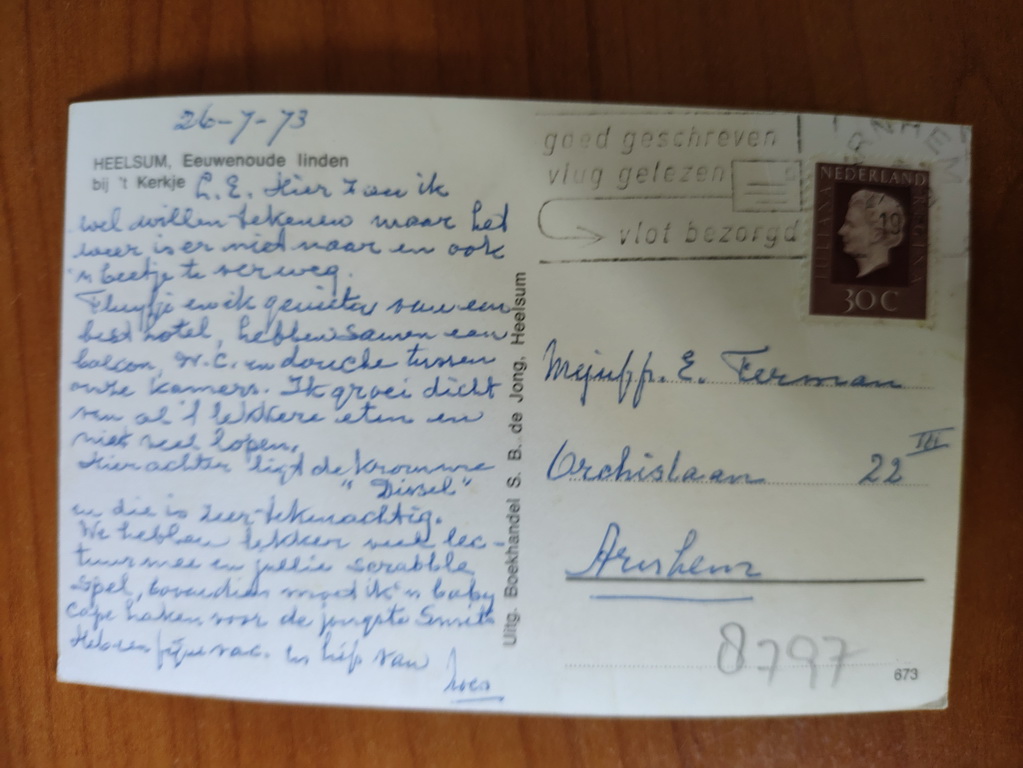 26-7-73
HEELSUM, Eeuwenoude linden
bij 't Kerkje
L. E. Hier zou ik
wel willen tekenen maar het
weer is er niet naar en ook
'n beetje te ver weg.
en ik genieten van een
best hotel, hebben samen een
balcon, W.C. en douche tussen
onze kamers. Ik groei dicht
van al 't lekkere eten en
niet veel lopen.
Hierachter ligt de Kromme
"Dissel"
en die is zeer tekenachtig.
We hebben lekker veel lec-
tuur mee en jullie scrabble
spel, bovendien moet ik 'n baby
cape haken voor de jongste Smit
Heb een fijne vac. en liefs van
Uitg. Boekhandel S. B. de Jong, Heelsum
goed geschreven
vlug gelezen
vlot bezorgd
ARNHEM
19
NEDERLAND
JULIANA REGINA
30 C
Mejuffr. E. Ferman
Orchislaan 22 III
Arnhem
8797
673